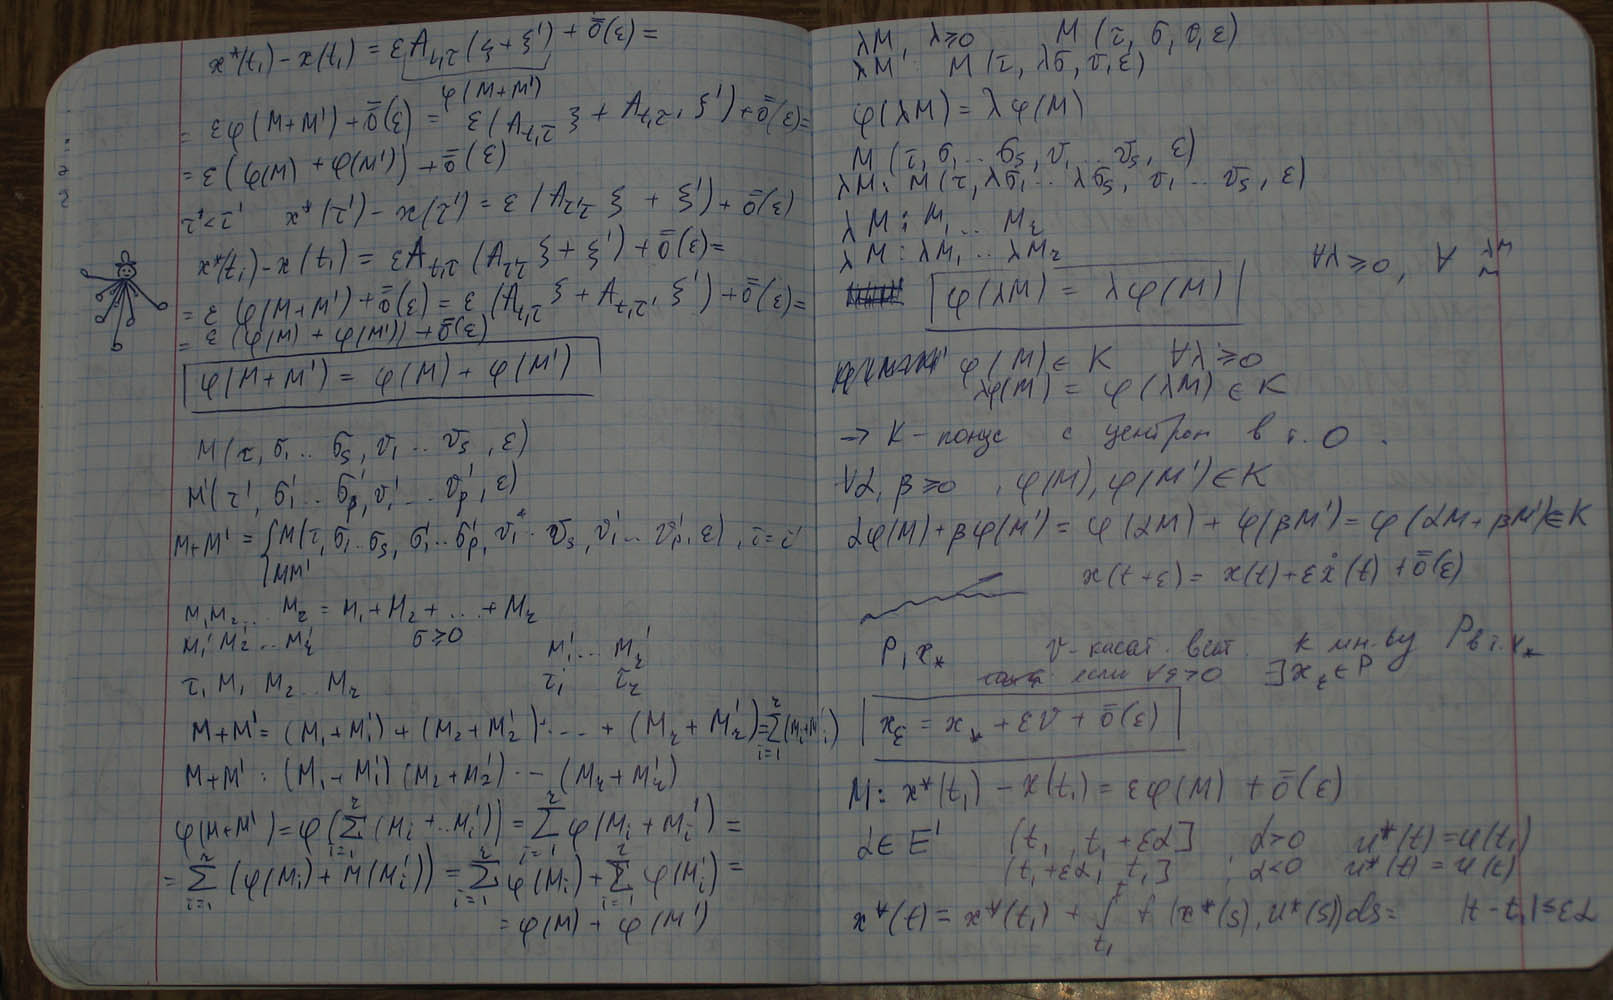 x*(t₁) - x(t₁) = εA_{t₁,τ}(ξ+ξ') + ō(ε) =
φ(M+M')
= εφ(M+M') + ō(ε) = ε(A_{t₁,τ} ξ + A_{t₁,τ'} ξ') + ō(ε) =
= ε(φ(M) + φ(M')) + ō(ε)
x*(τ') - x(τ') = ε(A_{τ',τ} ξ + ξ') + ō(ε)
x*(t₁) - x(t₁) = εA_{t₁,τ'}(A_{τ',τ} ξ + ξ') + ō(ε) =
= ε φ(M+M') + ō(ε) = ε (A_{t₁,τ} ξ + A_{t₁,τ'} ξ') + ō(ε) =
= ε (φ(M) + φ(M')) + ō(ε)
φ(M+M') = φ(M) + φ(M')
M(τ, σ₁ .. σₛ, v₁ .. vₛ, ε)
M'(τ', σ₁' .. σₚ', v₁' ... vₚ', ε)
M+M' = { M(τ, σ₁ .. σₛ, σ₁' .. σₚ', v₁ .. vₛ, v₁' .. vₚ', ε), τ = τ'
MM'
M₁M₂ ... M_r = M₁ + M₂ + ... + M_r
M₁'M₂' .. M_r' σ ≥ 0 M₁' ... M_r'
τ₁ M₁ M₂ .. M_r τ₁ τ_r
M+M' = (M₁+M₁') + (M₂+M₂') + ... + (M_r+M_r') = Σ_{i=1}^{r} (M_i+M_i')
M+M' : (M₁+M₁') (M₂+M₂') ... (M_r+M_r')
φ(M+M') = φ(Σ_{i=1}^{r} (M_i + .. M_i')) = Σ_{i=1}^{r} φ(M_i + M_i') =
= Σ_{i=1}^{r} (φ(M_i) + M(M_i')) = Σ_{i=1}^{r} φ(M_i) + Σ_{i=1}^{r} φ(M_i') =
= φ(M) + φ(M')
λM, λ ≥ 0 M(τ, σ, v, ε)
λM : M(τ, λσ, v, ε)
φ(λM) = λφ(M)
M(τ, σ₁ .. σₛ, v₁ ... vₛ, ε)
λM : M(τ, λσ₁ .. λσₛ, v₁ .. vₛ, ε)
λM : M₁ ... M_r
λM : λM₁ .. λM_r ∀λ ≥ 0, ∀
φ(λM) = λφ(M)
φ(M) ∈ K ∀λ ≥ 0
λφ(M) = φ(λM) ∈ K
→ K - конус с центром в т. O.
∀α, β ≥ 0, φ(M), φ(M') ∈ K
αφ(M) + βφ(M') = φ(αM) + φ(βM') = φ(αM + βM') ∈ K
x(t+ε) = x(t) + εẋ(t) + ō(ε)
P, x* v - касат. вект. к мн-ву P в т. x*
если ∀ε > 0 ∃x_ε ∈ P
x_ε = x* + εv + ō(ε)
M : x*(t₁) - x(t₁) = εφ(M) + ō(ε)
α ∈ E¹ (t₁, t₁ + εα] α > 0 u*(t) = u(t₁)
(t₁ + εα, t₁], α < 0 u*(t) = u(t)
x*(t) = x*(t₁) + ∫_{t₁}^{t} f(x*(s), u*(s))ds = |t - t₁| ≤ εα